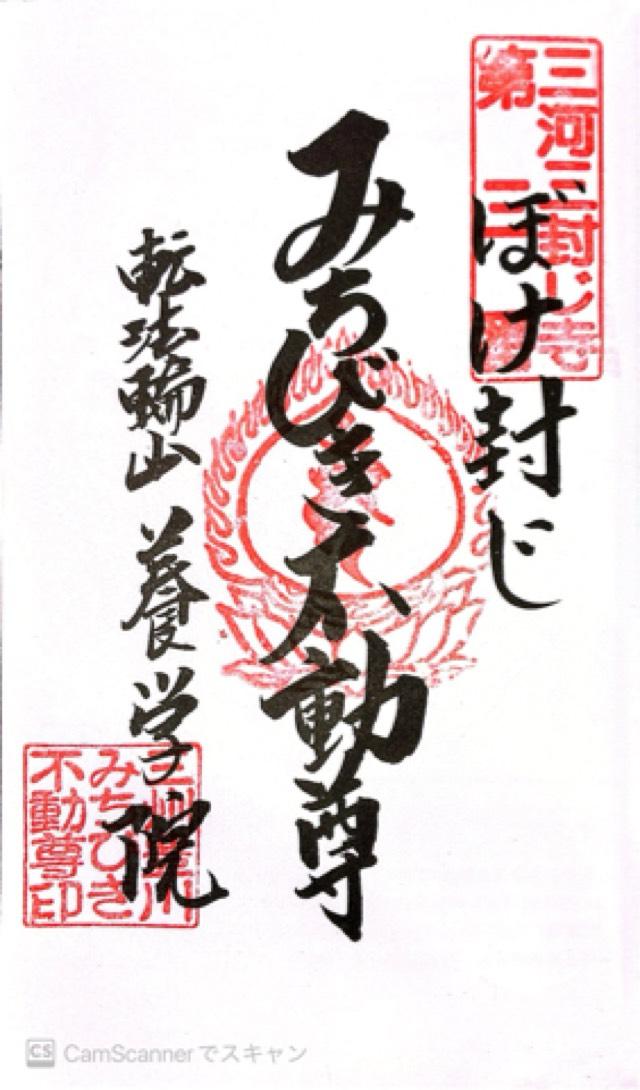 三河三封じ寺
第
ぼけ封じ
みちびき不動尊
転法輪山 養学院
みちびき
不動尊印
CS CamScannerでスキャン